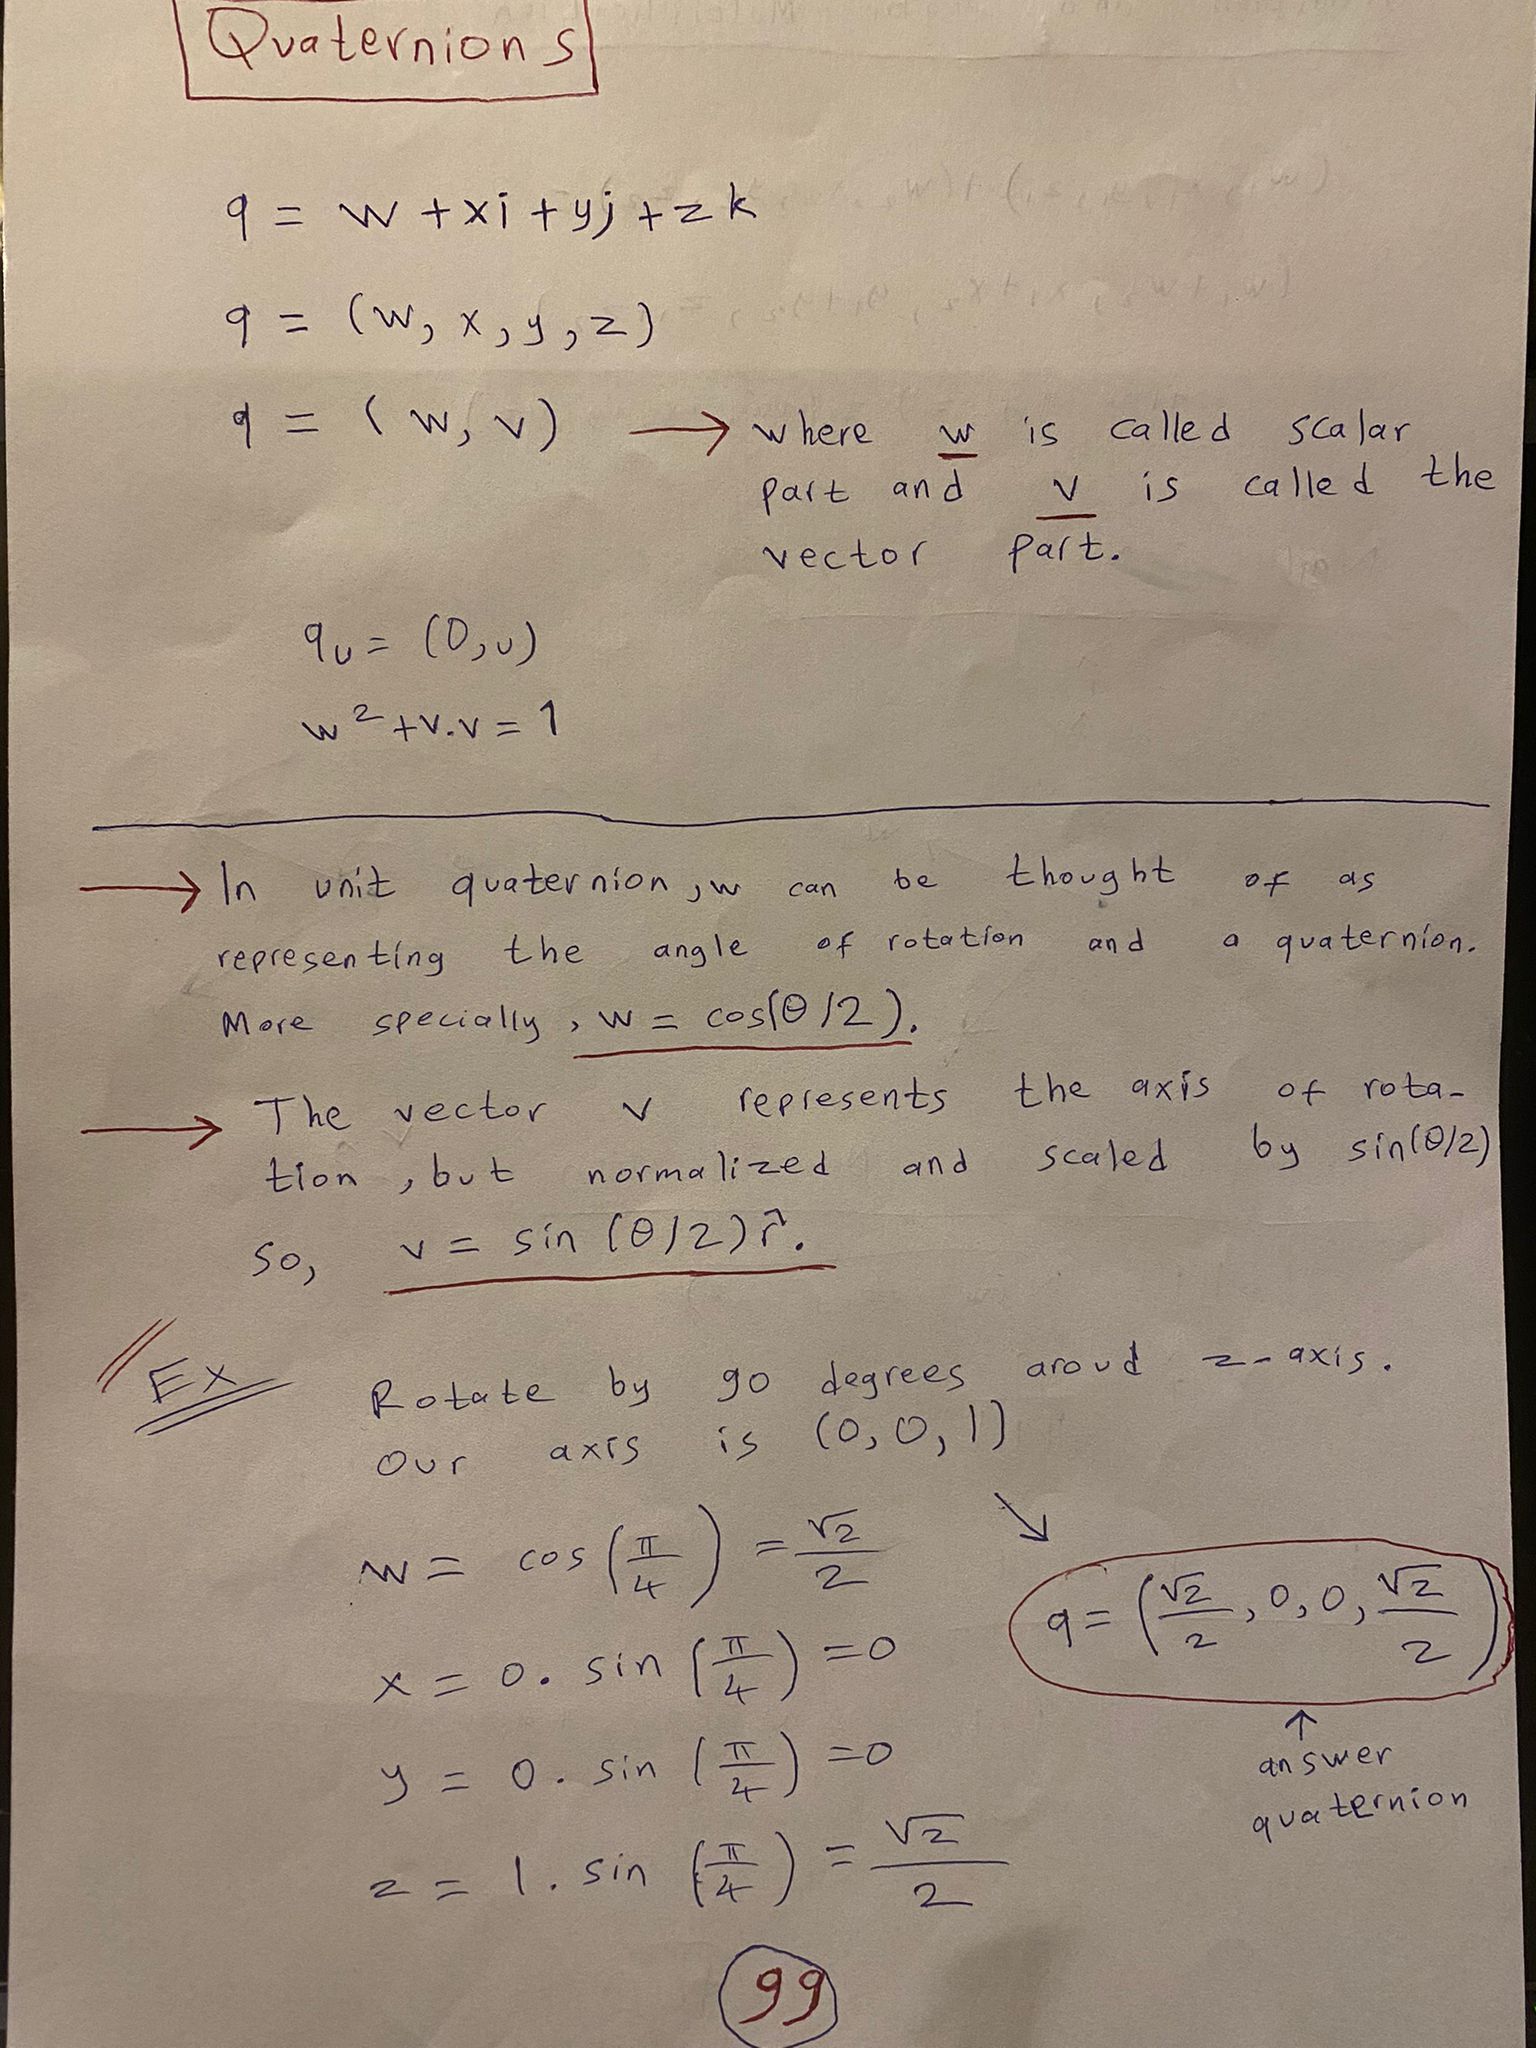 Quaternions
q = w + xi + yj + zk
q = (w, x, y, z)
q = (w, v) → where w is called scalar
part and v is called the
vector part.
qu = (0, u)
w² + v.v = 1
→ In unit quaternion, w can be thought of as
representing the angle of rotation and a quaternion.
More specially, w = cos(θ/2).
→ The vector v represents the axis of rota-
tion, but normalized and scaled by sin(θ/2)
so, v = sin (θ/2) r̂.
Ex Rotate by 90 degrees aroud z-axis.
Our axis is (0, 0, 1)
w = cos (π/4) = √2/2
x = 0. sin (π/4) = 0
y = 0. sin (π/4) = 0
z = 1. sin (π/4) = √2/2
q = (√2/2, 0, 0, √2/2)
↑
answer
quaternion
99